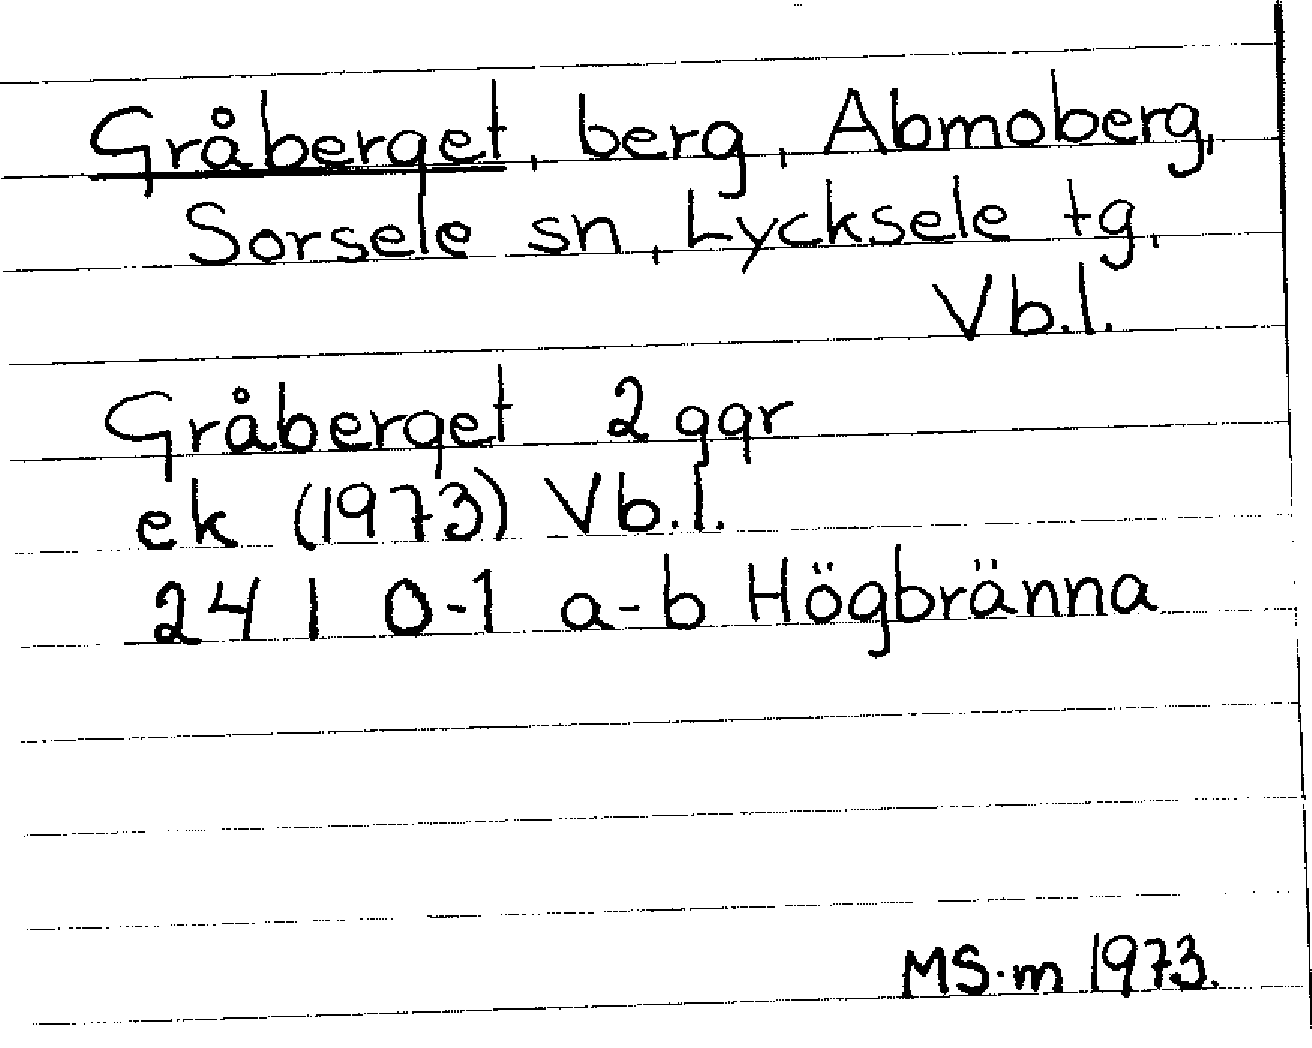 Gråberget, berg, Abmoberg,
Sorsele sn, Lycksele tg,
Vb.l.
Gråberget 2 ggr
ek (1973) Vb.l.
24 I 0-1 a-b Högbränna
MS·m 1973.